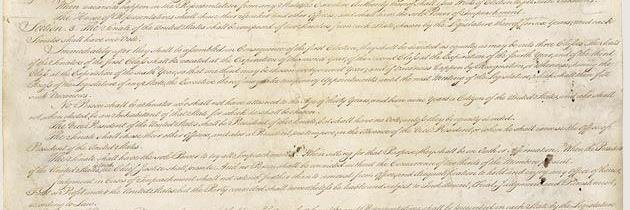 When vacancies happen in the Representation from any State, the Executive Authority thereof shall issue Writs of Election to fill such Vacancies.
The House of Representatives shall chuse their Speaker and other Officers; and shall have the sole Power of Impeachment.
Section. 3. The Senate of the United States shall be composed of two Senators from each State, chosen by the Legislature thereof, for six Years; and each
Senator shall have one Vote.
Immediately after they shall be assembled in Consequence of the first Election, they shall be divided as equally as may be into three Classes. The Seats
of the Senators of the first Class shall be vacated at the Expiration of the second Year, of the second Class at the Expiration of the fourth Year, and of the third
Class at the Expiration of the sixth Year, so that one third may be chosen every second Year; and if Vacancies happen by Resignation, or otherwise, during the
Recess of the Legislature of any State, the Executive thereof may make temporary Appointments until the next Meeting of the Legislature, which shall then fill
such Vacancies.
No Person shall be a Senator who shall not have attained to the Age of thirty Years, and been nine Years a Citizen of the United States, and who shall
not, when elected, be an Inhabitant of that State for which he shall be chosen.
The Vice President of the United States shall be President of the Senate, but shall have no Vote, unless they be equally divided.
The Senate shall chuse their other Officers, and also a President pro tempore, in the Absence of the Vice President, or when he shall exercise the Office of
President of the United States.
The Senate shall have the sole Power to try all Impeachments. When sitting for that Purpose, they shall be on Oath or Affirmation. When the President
of the United States the Chief Justice shall preside: And no Person shall be convicted without the Concurrence of two thirds of the Members present.
Judgment in Cases of Impeachment shall not extend further than to removal from Office, and disqualification to hold and enjoy any Office of honor,
Trust or Profit under the United States: but the Party convicted shall nevertheless be liable and subject to Indictment, Trial, Judgment and Punishment,
according to Law.
Representatives, shall be prescribed in each State by the Legislature